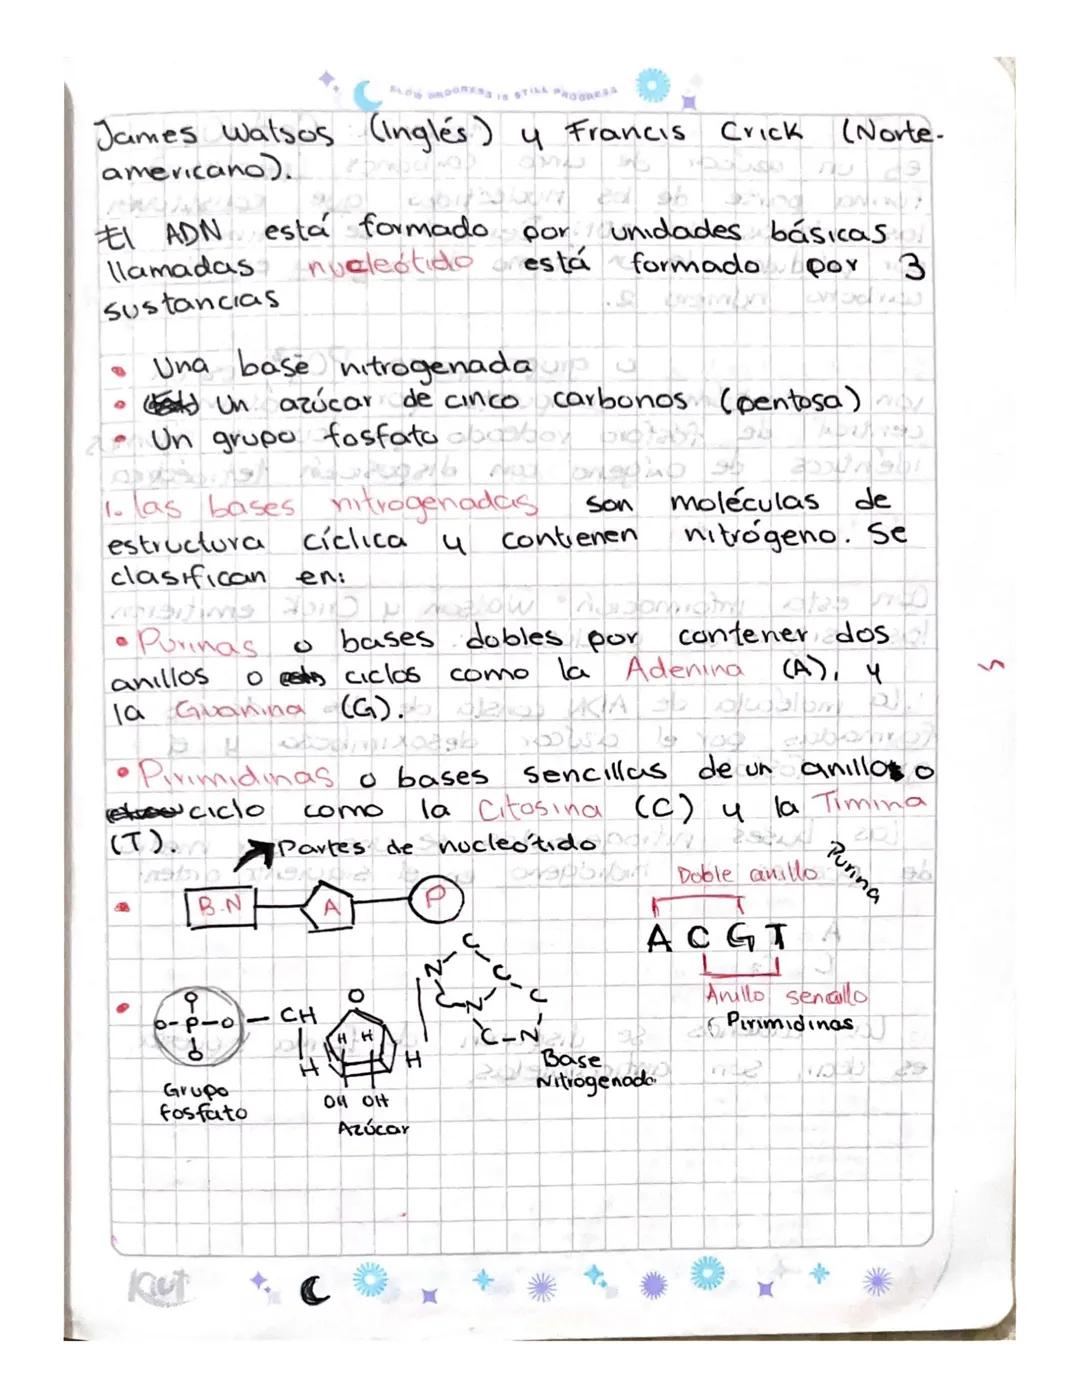 SLOW PROGRESS IS STILL PROGRESS
James Watsos (Inglés) y Francis Crick (Norte-
americano).
El ADN está formado por unidades básicas
llamadas nucleótido está formado por 3
sustancias
• Una base nitrogenada
• Un azúcar de cinco carbonos (pentosa)
• Un grupo fosfato
1. las bases nitrogenadas son moléculas de
estructura cíclica y contienen nitrógeno. Se
clasifican en:
• Purinas o bases dobles por contener dos
anillos o ciclos como la Adenina (A), y
la Guanina (G).
• Pirimidinas o bases sencillas de un anillo o
ciclo como la Citosina (C) y la Timina
(T).
Partes de nucleótido
B.N A P
Doble anillo Purina
A C G T
Anillo sencillo
Pirimidinas
O
O-P-O
O
CH
H
O
H H
H
OH OH
C
N C
C N C
C-N
Grupo
fosfato
Azúcar
Base
Nitrogenada
Kiut